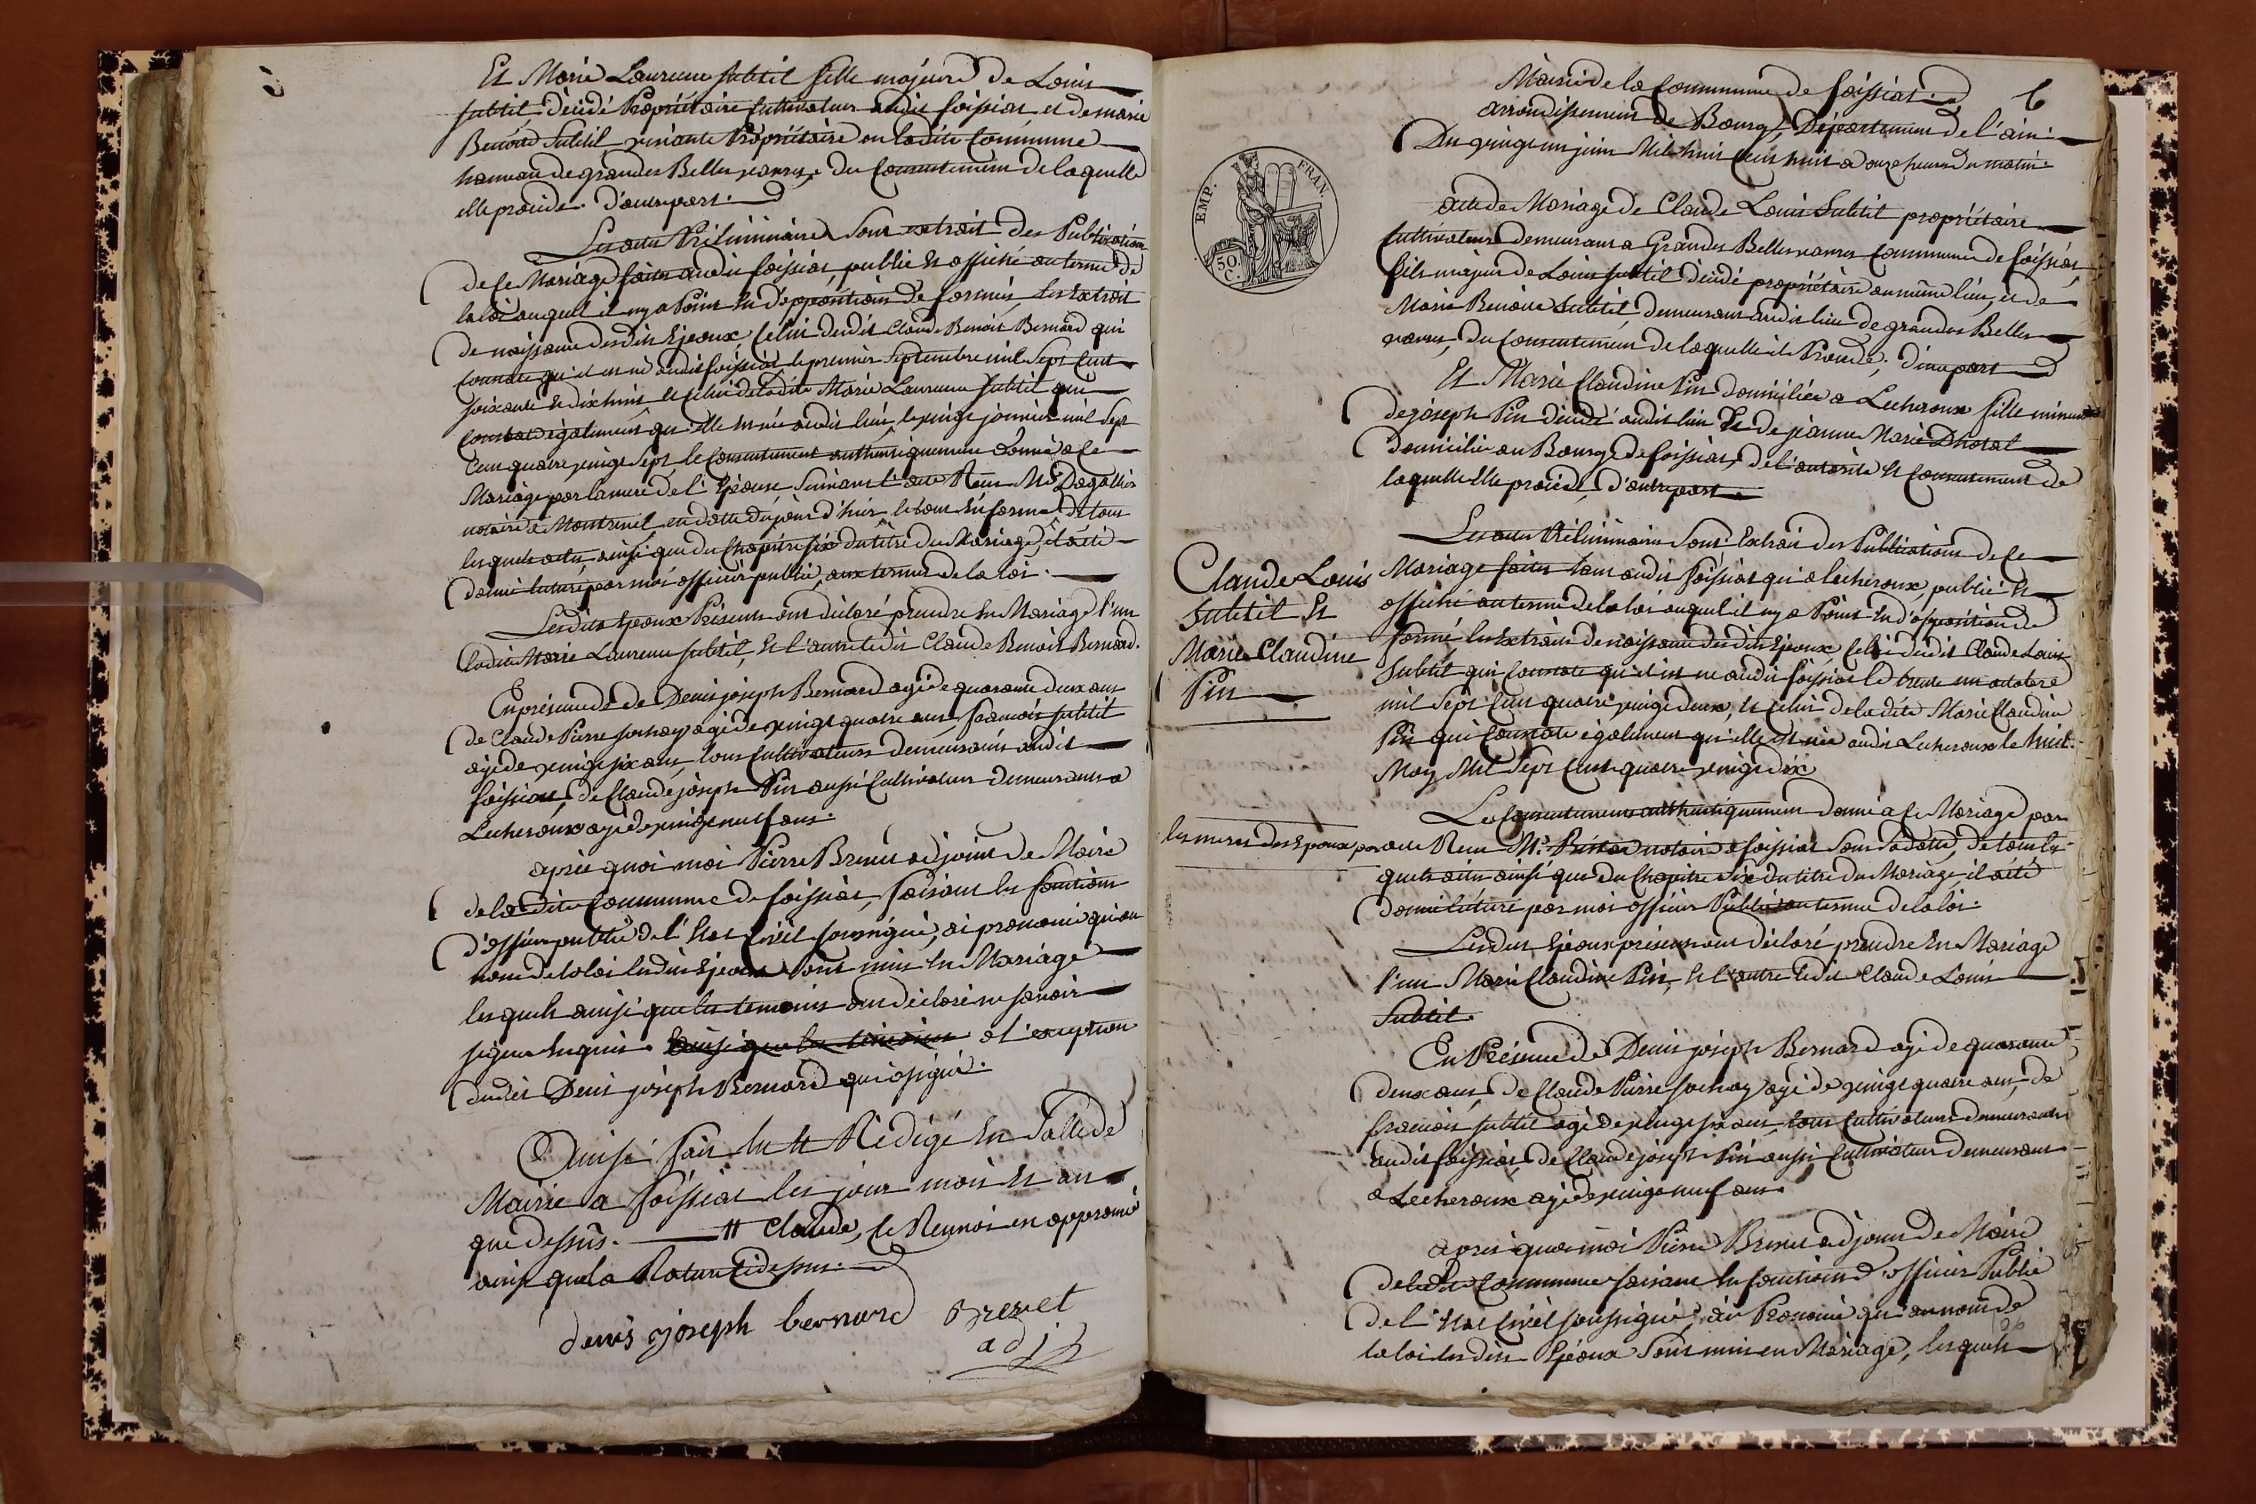 Et Marie Laurence Subtil fille majeure de Louis
Subtil décédé Propriétaire Cultivateur audit foissiat et de marie
Benoite Subtil vivante Propriétaire en ladite Commune
hameau de grandes Belles vavres, du Consentement de laquelle
elle procède. d'autre part.
Les actes Préliminaires Sont extrait des Publications
de ce Mariage faites audit foissiat, publié et affiché au terme de
la loi auquel il n'y a Point eu d'opposition de formée, les extrait
de naissance desdits Epoux Celui dudit Claude Benoit Bernard qui
Constate qu'il est né audit foissiat le premier Septembre mil Sept Cent
soixante et dix huit et Celui de ladite Marie Laurence Subtil qui
Constate également qu'elle est née audit lieu le vingt janvier mil Sept
Cent quatre vingt Sept, le Consentement authentiquement donné a Ce
Mariage par la mere de l'Epouse Suivant l'acte Reçu Me Dagallier
notaire a Montrevel en datte du jour d'hier, le tout En forme de tous
lesquels actes, ainsi que du Chapitre Six du titre du Mariage, il a été
donné lecture par moi officier public, aux termes de la loi.
Lesdits Epoux Présents ont déclaré prendre En Mariage l'un
ladite Marie Laurence Subtil, et l'autre ledit Claude Benoit Bernard.
En présence de Denis joseph Bernard agé de quarante deux ans
de Claude Pierre Sochay agé de vingt quatre ans, francois Subtil
agé de vingt six ans, tous Cultivateurs demeurants audit
foissiat, de Claude joseph Pin aussi Cultivateur demeurants a
Lescheroux agé de vingt neuf ans.
après quoi moi Pierre Brevet adjoint de Maire
de ladite Commune de foissiat, faisant les fonctions
d'officier public de l'Etat Civil soussigné, ai prononcé qu'au
nom de la loi lesdits Epoux Sont unis En Mariage
lesquels ainsi que les temoins ont déclaré ne savoir
signer Enquis. ainsi que les temoins a l'exception
dudit Denis joseph Bernard qui a signé.
Ainsi fait lu et Rédigé En Salle de
Mairie a foissiat les jour mois et an
que dessus. # Claude, le Renvoi en approuvé
ainsi que la Rature Cidessus.
denis joseph bernard Brevet
adjt
6
Mairie de la Commune de foissiat.
arrondissement de Bourg, Département de l'ain.
Du vingt un juin Mil huit Cent huit a onze heures du matin.
EMP. FRAN.
50.
C.
acte de Mariage de Claude Louis Subtil propriétaire
Cultivateur demeurant a Grandes Belles vavres Commune de foissiat,
fils majeur de Louis Subtil décédé propriétaire au même lieu, et de
Marie Benoite Subtil, demeurant audit lieu de grandes Belles
vavres, du Consentement de laquelle il Procède; d'une part
Et Marie Claudine Pin domiciliée a Lecheroux fille mineure
de joseph Pin décédé audit lieu Et de jeanne Marie
domiciliée au Bourg de foissiat, de l'autorité et Consentement de
laquelle Elle procède, d'autre part.
Les actes Préliminaires Sont Extrait des Publications de Ce
Claude Louis
Subtil Et
Marie Claudine
Pin
Mariage faites tant audit foissiat qu'a lecheroux, publié et
affiché au terme de la loi auquel il n'y a Point Eu d'opposition de
formée, les Extraits de naissance desdits Epoux, Celui dudit Claude Louis
Subtil qui Constate qu'il est né audit foissiat le trente un octobre
mil Sept Cent quatre vingt deux, et Celui de ladite Marie Claudine
Pin qui Constate également qu'elle est née audit Lecheroux le huit
May Mil Sept Cent quatre vingt dix
Le Consentement authentiquement donné a Ce Mariage par
les meres des Epoux par acte Reçu Me. notaire a foissiat Sous Sa datte, de tous les
quels actes ainsi que du Chapitre Six du titre du Mariage il a été
donné lecture par moi officier Public au terme de la loi.
Lesdits Epoux présens ont déclaré prendre En Mariage
l'un Marie Claudine Pin, et l'autre ledit Claude Louis
Subtil.
En Présence de Denis joseph Bernard agé de quarante
deux ans, de Claude Pierre Sochay agé de vingt quatre ans, de
francois Subtil agé de vingt six ans, tous Cultivateurs demeurants
audit foissiat, de Claude joseph Pin aussi Cultivateur demeurant
a Lecheroux agé de vingt neuf ans.
après quoi moi Pierre Brevet adjoint de Maire
de ladite Commune faisant les fonctions d'officier Public
de l'Etat Civil soussigné ai Prononcé qu'au nom de
la loi lesdits Epoux Sont unis en Mariage, lesquels